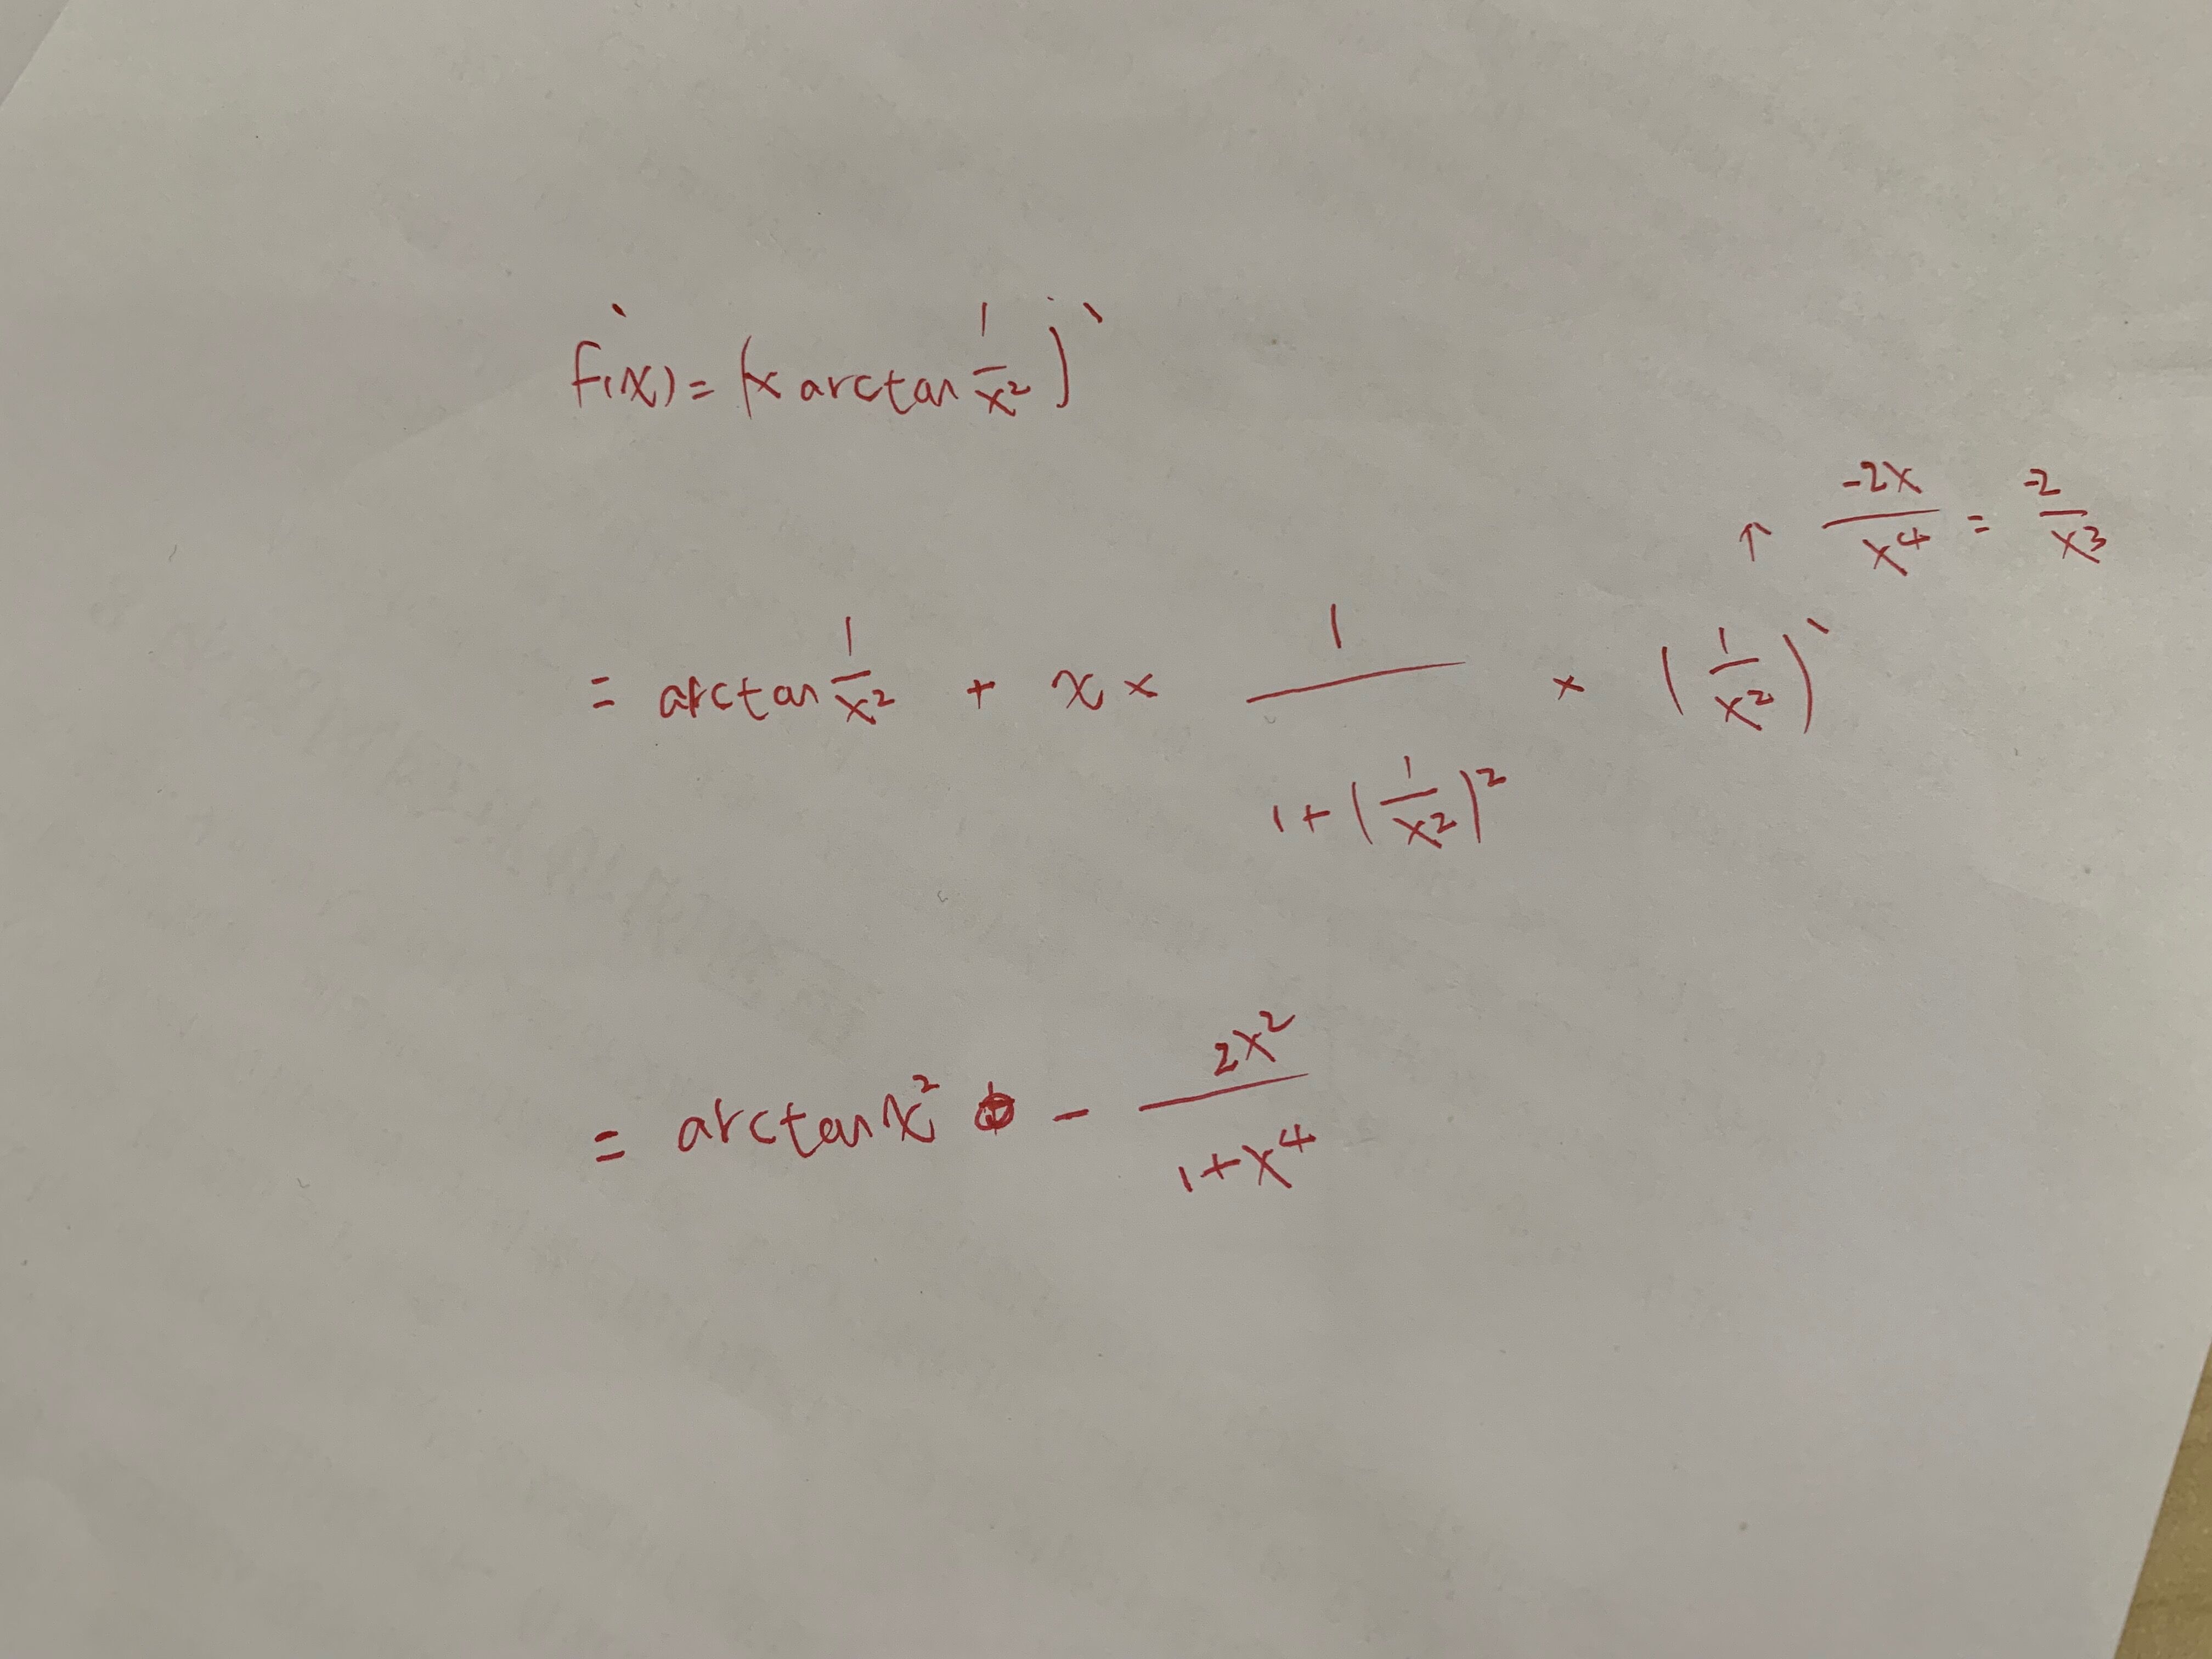 f'(x) = (x arctan 1/x²)'
↑ -2x/x⁴ = -2/x³
= arctan 1/x² + x × 1/(1+(1/x²)²) × (1/x²)'
= arctan x² - 2x²/(1+x⁴)